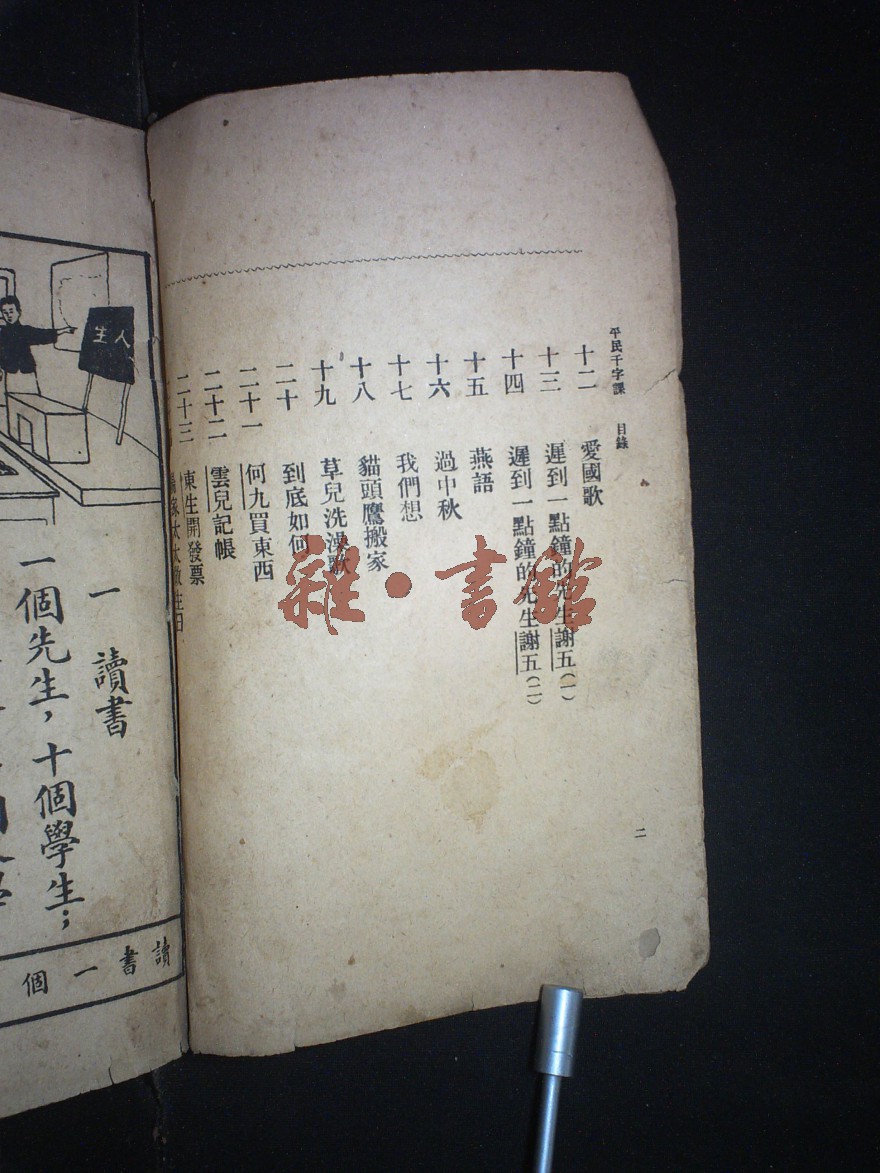 平民千字課 目錄
十二 愛國歌
十三 遲到一點鐘的先生謝五(一)
十四 遲到一點鐘的先生謝五(二)
十五 燕語
十六 過中秋
十七 我們想
十八 貓頭鷹搬家
十九 草兒洗澡歌
二十 到底如何
二十一 何九買東西
二十二 雲兒記帳
二十三 東生開發票
太太做生日
二
雜·書館
人生
一 讀書
一個先生，十個學生；
讀書一個